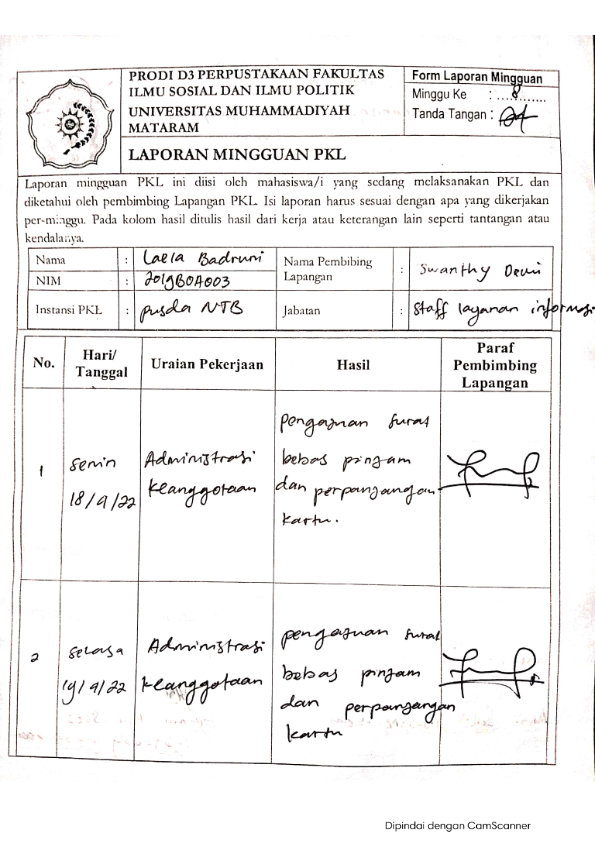 PRODI D3 PERPUSTAKAAN FAKULTAS
ILMU SOSIAL DAN ILMU POLITIK
UNIVERSITAS MUHAMMADIYAH
MATARAM
LAPORAN MINGGUAN PKL
Form Laporan Mingguan
Minggu Ke : ...8.......
Tanda Tangan :
Laporan mingguan PKL ini diisi oleh mahasiswa/i yang sedang melaksanakan PKL dan
diketahui oleh pembimbing Lapangan PKL. Isi laporan harus sesuai dengan apa yang dikerjakan
per-minggu. Pada kolom hasil ditulis hasil dari kerja atau keterangan lain seperti tantangan atau
kendalanya.
Nama : Laela Badruni
NIM : 2019B0A003
Instansi PKL : pusda NTB
Nama Pembibing
Lapangan : Swanthy Dewi
Jabatan : Staff layanan informasi
No. Hari/ Tanggal Uraian Pekerjaan Hasil Paraf Pembimbing Lapangan
1 senin
18/4/22
Administrasi
keanggotaan
pengajuan surat
bebas pinjam
dan perpanjangan
kartu.
2 selasa
19/4/22
Administrasi
keanggotaan
pengajuan surat
bebas pinjam
dan perpanjangan
kartu
Dipindai dengan CamScanner